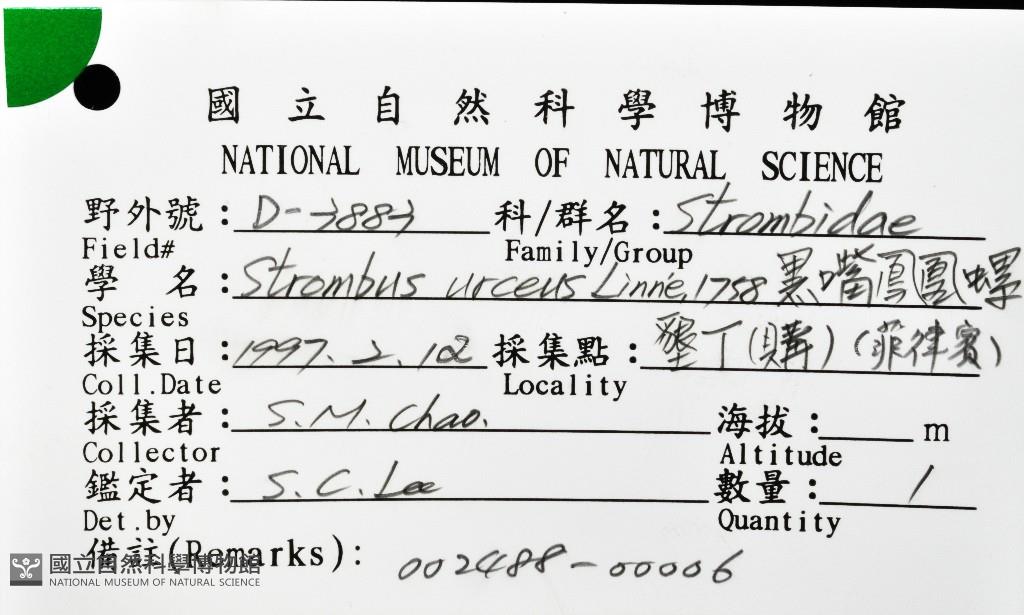 國立自然科學博物館
NATIONAL MUSEUM OF NATURAL SCIENCE
野外號：D-3883 科/群名：Strombidae
Field# Family/Group
學 名：Strombus urceus Linné, 1758 黑嘴鳳凰螺
Species
採集日：1997. 2. 12 採集點：墾丁(購)(菲律賓)
Coll.Date Locality
採集者：S.M. Chao. 海拔： m
Collector Altitude
鑑定者：S.C. Lee 數量：1
Det.by Quantity
備註(Remarks): 002488-00006
國立自然科學博物館
NATIONAL MUSEUM OF NATURAL SCIENCE